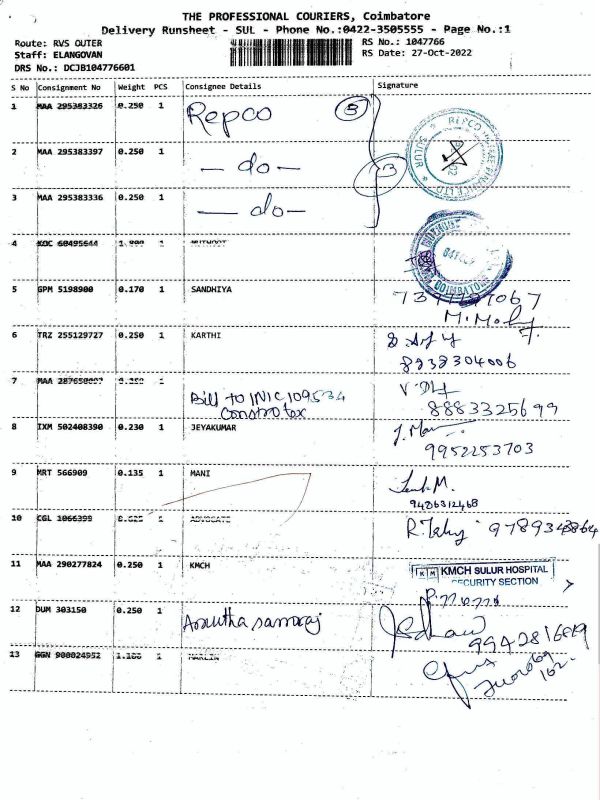 THE PROFESSIONAL COURIERS, Coimbatore
Delivery Runsheet - SUL - Phone No.:0422-3505555 - Page No.:1
Route: RVS OUTER
Staff: ELANGOVAN
DRS No.: DCJB104776601
RS No.: 1047766
RS Date: 27-Oct-2022
S No Consignment No Weight PCS Consignee Details Signature
1 MAA 295383326 0.250 1 Repco
2 MAA 295383397 0.250 1 — do —
3 MAA 295383336 0.250 1 — do —
REPCO HOME FINANCE LTD SULUR
4 KOC 60495644 1 MUTHOOT
COIMBATORE
5 GPM 5198900 0.170 1 SANDHIYA
6 TRZ 255129727 0.250 1 KARTHI
8938304006
7 MAA 1 Bill to INIC109534
Constrotax
8883325699
8 IXM 502408390 0.230 1 JEYAKUMAR
9952253703
9 MRT 566909 0.135 1 MANI
9486312468
10 CGL 1066399 1 ADVOCATE
11 MAA 290277824 0.250 1 KMCH
KMCH SULUR HOSPITAL
SECURITY SECTION
12 DUM 303150 0.250 1
13 GGN 900024952 1 MARLIN